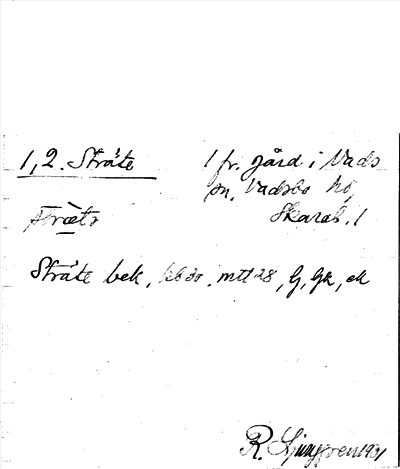 1,2. Stråte
1 fr. gård i Vads
sn, Vadsbo hd,
Skarab. l
stræ̀tə
Stråte bek, , mtl 28, G, Gk, ek
R. Ljunggren 1931